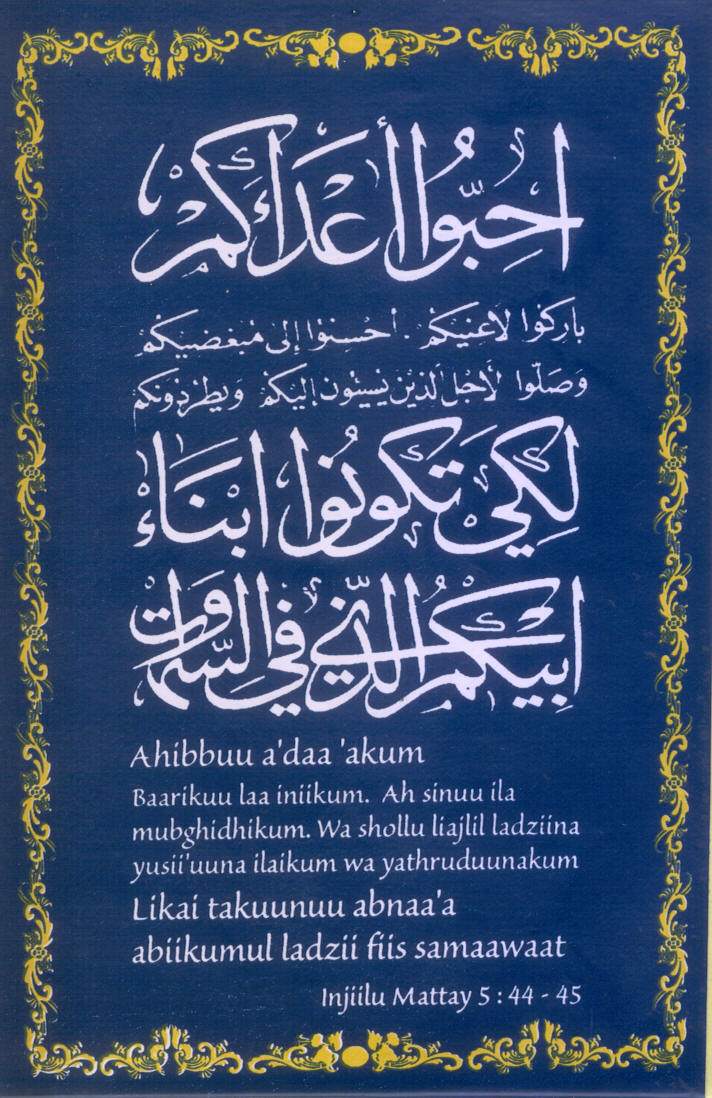 احِبّوا أعدَائَكُمْ
بارِكوا لاعنيكُمْ . أحْسِنوا إلى مُبغضيكُمْ
وَصَلّوا لأجْل الّذينَ يسيئون إليكُمْ ويطردونكم
لِكَي تَكونُوا ابنَاءَ
ابيكُم الّذي في السّموَات
Ahibbuu a'daa 'akum
Baarikuu laa iniikum. Ah sinuu ila
mubghidhikum. Wa shollu liajlil ladziina
yusii'uuna ilaikum wa yathruduunakum
Likai takuunuu abnaa'a
abiikumul ladzii fiis samaawaat
Injiilu Mattay 5 : 44 - 45